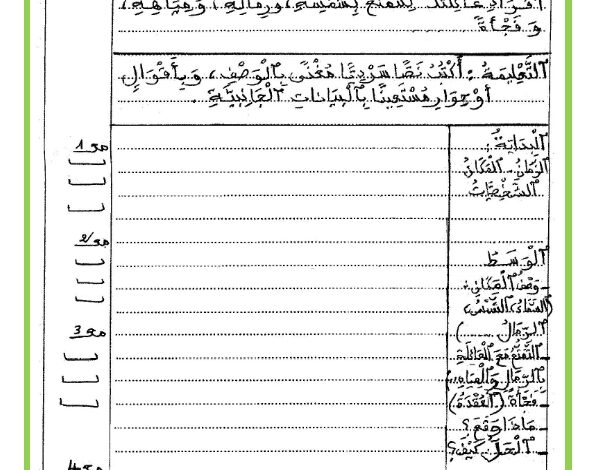 أَفْرَادِ عَائِلَتِكَ يَسْتَمْتِعُ بِشَمْسِهِ، وَرِمَالِهِ، وَمِيَاهِهِ،
وَفَجْأَةً
التَّعْلِيمَةُ: أَكْتُبُ نَصًّا سَرْدِيًّا مُغْنًى بِالْوَصْفِ، وَبِأَقْوَالٍ
أَوْ حِوَارٍ مُسْتَعِينًا بِالْبَيَانَاتِ الْجَانِبِيَّةِ.
الْبِدَايَةُ:
الزَّمَانُ - الْمَكَانُ
الشَّخْصِيَّاتُ
الْوَسَطُ
- وَصْفُ الْمَكَانِ:
(السَّمَاءُ، الشَّمْسُ،
الرِّمَالُ ......)
- التَّمَتُّعُ مَعَ الْعَائِلَةِ
بِالرِّمَالِ وَالْمِيَاهِ..
- فَجْأَةً (الْعُقْدَةُ)
- مَاذَا وَقَعَ؟
- الْحَلُّ كَيْفَ؟
مع 1
مع 2
مع 3
مع 4